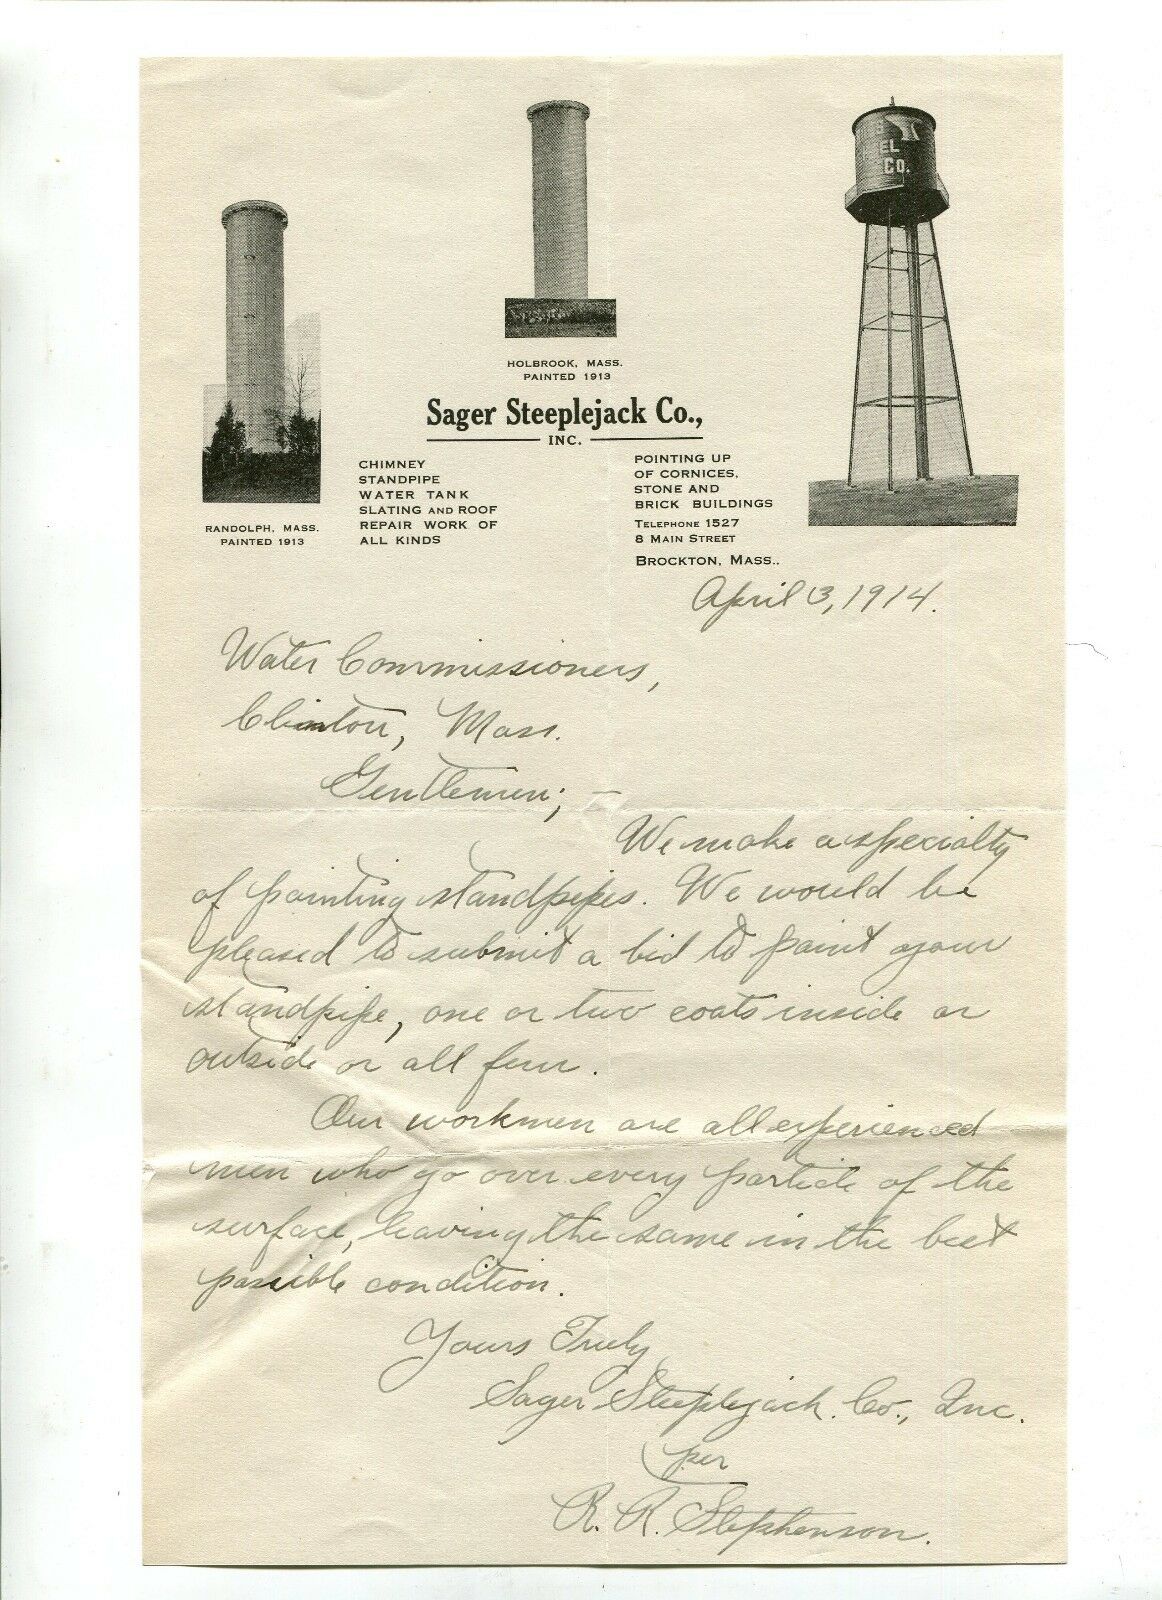 EL
CO.
HOLBROOK, MASS.
PAINTED 1913
Sager Steeplejack Co.,
INC.
RANDOLPH, MASS.
PAINTED 1913
CHIMNEY
STANDPIPE
WATER TANK
SLATING AND ROOF
REPAIR WORK OF
ALL KINDS
POINTING UP
OF CORNICES,
STONE AND
BRICK BUILDINGS
TELEPHONE 1527
8 MAIN STREET
BROCKTON, MASS..
April 3, 1914.
Water Commissioners,
Clinton, Mass.
Gentlemen; —
We make a specialty
of painting standpipes. We would be
pleased to submit a bid to paint your
standpipe, one or two coats inside or
outside or all four.
Our workmen are all experienced
men who go over every particle of the
surface, leaving the same in the best
possible condition.
Yours Truly
Sager Steeplejack. Co., Inc.
per
R. R. Stephenson.